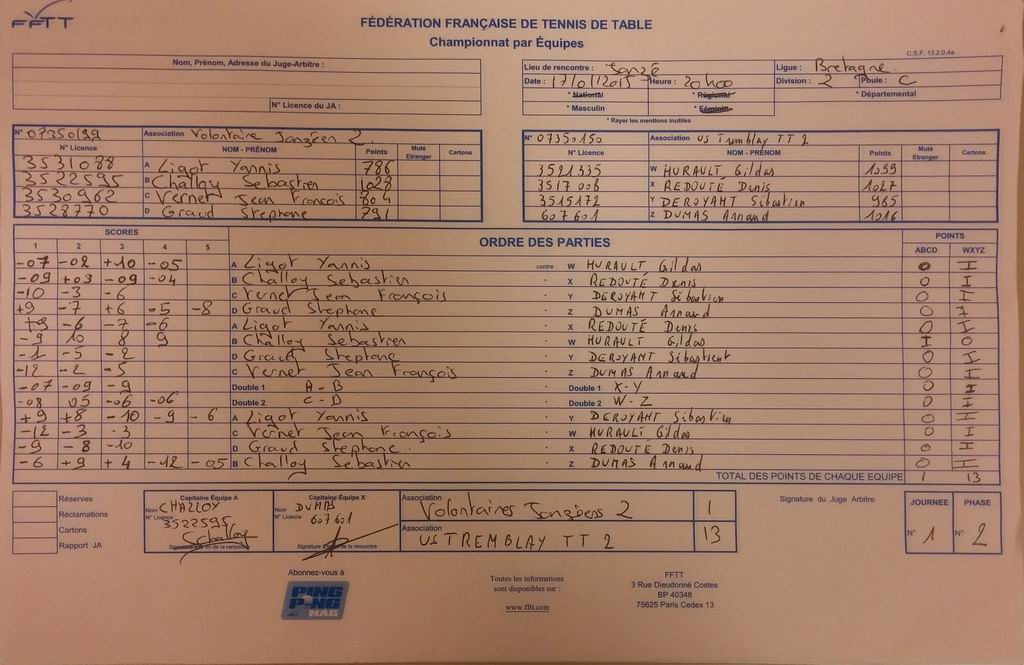 FFTT
FÉDÉRATION FRANÇAISE DE TENNIS DE TABLE
Championnat par Équipes
C.S.F. 13.2.0.4a
Nom, Prénom, Adresse du Juge-Arbitre :
N° Licence du JA :
Lieu de rencontre : Janzé Ligue : Bretagne
Date : 17/01/2015 Heure : 20h00 Division : 2 Poule : C
* National * Régional * Départemental
* Masculin * Féminin
* Rayer les mentions inutiles
N° 07350139 Association Volontaire Janzéen 2
N° Licence NOM - PRÉNOM Points Muté Etranger Cartons
3531088 A Ligot Yannis 786
3522595 B Challoy Sebastien 1028
3530962 C Vernet Jean François 804
3528770 D Graud Stephane 791
N° 07350150 Association US Tremblay TT 2
N° Licence NOM - PRÉNOM Points Muté Etranger Cartons
3521335 W HURAULT Gildas 1099
3517008 X REDOUTÉ Denis 1027
3515172 Y DEROYANT Sébastien 985
607601 Z DUMAS Arnaud 1016
SCORES ORDRE DES PARTIES POINTS
1 2 3 4 5 ABCD WXYZ
-07 -02 +10 -05 A Ligot Yannis contre W HURAULT Gildas 0 I
-09 +03 -09 -04 B Challoy Sebastien - X REDOUTÉ Denis 0 I
-10 -3 -6 C Vernet Jean François - Y DEROYANT Sébastien 0 I
+9 -7 +6 -5 -8 D Graud Stephane - Z DUMAS Arnaud 0 I
+9 -6 -7 -6 A Ligot Yannis - X REDOUTÉ Denis 0 I
-9 10 8 9 B Challoy Sebastien - W HURAULT Gildas I 0
-1 -5 -2 D Graud Stephane - Y DEROYANT Sébastient 0 I
-12 -2 -5 C Vernet Jean François - Z DUMAS Arnaud 0 I
-07 -09 -9 Double 1 A - B Double 1 X - Y 0 I
-08 05 -06 -06 Double 2 C - D Double 2 W - Z 0 I
+9 +8 -10 -9 -6 A Ligot Yannis - Y DEROYANT Sébastien 0 I
-12 -3 -3 C Vernet Jean François - W HURAULT Gildas 0 I
-9 -8 -10 D Graud Stephane - X REDOUTÉ Denis 0 I
-6 +9 +4 -12 -05 B Challoy Sebastien - Z DUMAS Arnaud 0 I
TOTAL DES POINTS DE CHAQUE EQUIPE 1 13
Réserves
Réclamations
Cartons
Rapport JA
Capitaine Équipe A
Nom CHALLOY
N° Licence 3522595
Signature en fin de la rencontre
Capitaine Équipe X
Nom DUMAS
N° Licence 607601
Signature en fin de la rencontre
Association Volontaires Janzéens 2 1
Association US TREMBLAY TT 2 13
Signature du Juge Arbitre
JOURNEE PHASE
N° 1 N° 2
Abonnez-vous à
PING PONG MAG
Toutes les informations
sont disponibles sur :
www.fftt.com
FFTT
3 Rue Dieudonné Costes
BP 40348
75625 Paris Cedex 13